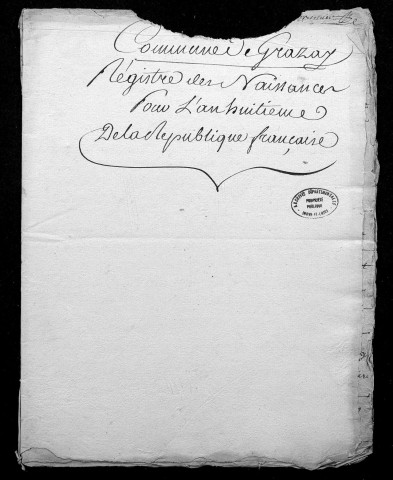 Commune de Grazay
Régistre des Naissances
Pour L'an huitieme
De la République française
ARCHIVES DÉPARTEMENTALES
PROPRIÉTÉ
PUBLIQUE